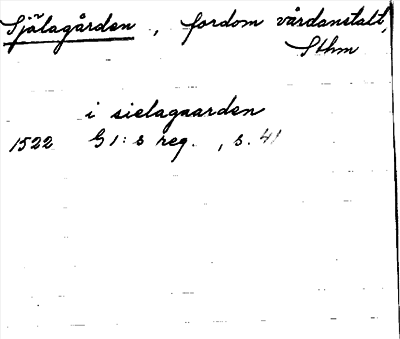 Själagården, fordom vårdanstalt,
Sthm
i sielagaarden
1522 G1:s reg., s. 41